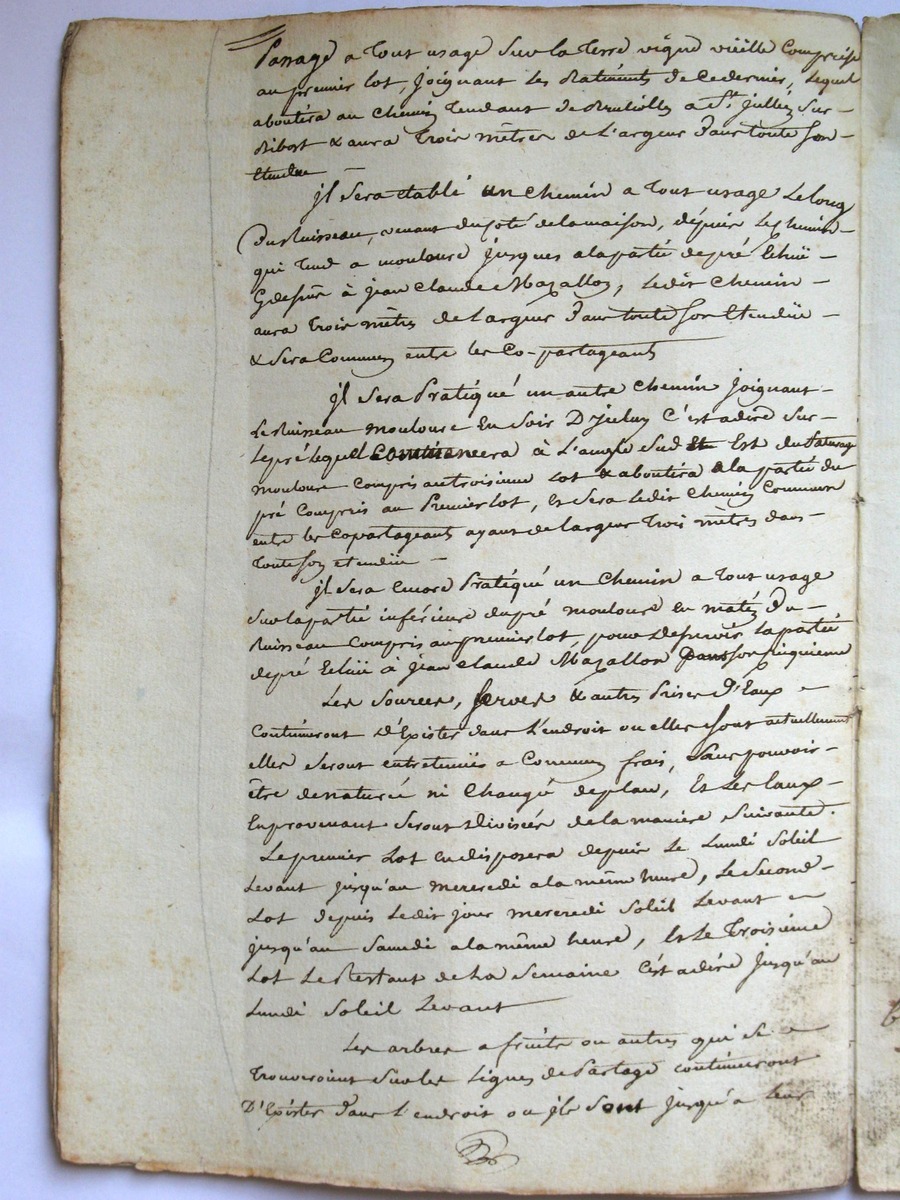 Passage a Tout usage Sur la Terre vigne vieille Comprise
au premier lot, joignant Les Batiments de Ce dernier, lequel
aboutira au Chemin Tendant de a St. jullien Sur
Ribost & aura Trois mètres de L'argeur Dans toute Son
Etendue
jl Sera etabli un Chemin a Tout usage Le long
Du Ruisseau, venant du coté de la maison, dépuis Le chemin
qui Tend a moulouse jusques a la partie de pré Echüe
à jean Claude Mazallon, Ledit Chemin
aura Trois mètres de Largeur Dans toute Son Etendüe
& Sera Commun entre les Co-partageants
jl Sera Pratiqué un autre Chemin joignant
Le Ruisseau moulouse En Soir C'est adire Sur
Le pré lequel Commencera à L'angle Sud Est du
moulouse Compris au troisieme Lot & aboutira a la partie du
pré Compris au Premier Lot, Et Sera Ledit Chemin Commun
entre les Copartageants ayant de largeur Trois mètres dans
Toute Son etendüe
jl Sera Encore Pratiqué un Chemin a Tout usage
Sur la partie inférieure du pré moulouse En matin Du
Ruisseau Compris au premier lot, pour Deservir La partie
de pré Echüe à jean Claude Mazallon
Les Sources, Serves & autres Prises D'Eaux
Continueront D'Exister dans L'endroit ou elles Sont actuellement
elles Seront entretenües a Commun frais, Sans pouvoir
être denaturée ni Changé de place, Et Les Eaux
En provenant Seront Divisées de la maniere Suivante.
Le premier Lot En disposera depuis Le Lundi Soleil
Levant jusqu'au mercredi a la même heure, Le Second
Lot depuis Ledit jour mercredi Soleil Levant
jusqu'au Samedi a la même heure, Et Le Troisieme
Lot Le Restant de La Semaine C'est adire jusqu'au
Lundi Soleil Levant
Les arbres a fruits ou autres qui Se
Trouveroient Sur les Lignes de Partage continueront
D'Exister Dans L'endroit ou jls Sont jusqu'a leur